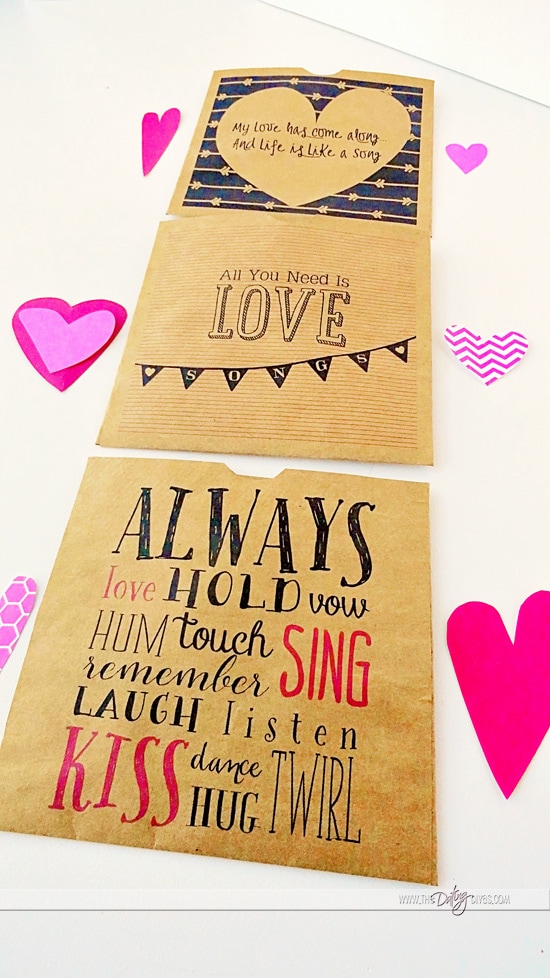 My Love has come along...
And Life is Like a Song
All You Need Is
LOVE
SONGS
ALWAYS
love HOLD vow
HUM touch SING
remember
LAUGH listen
KISS dance TWIRL
HUG
WWW.THE Dating DIVES.COM